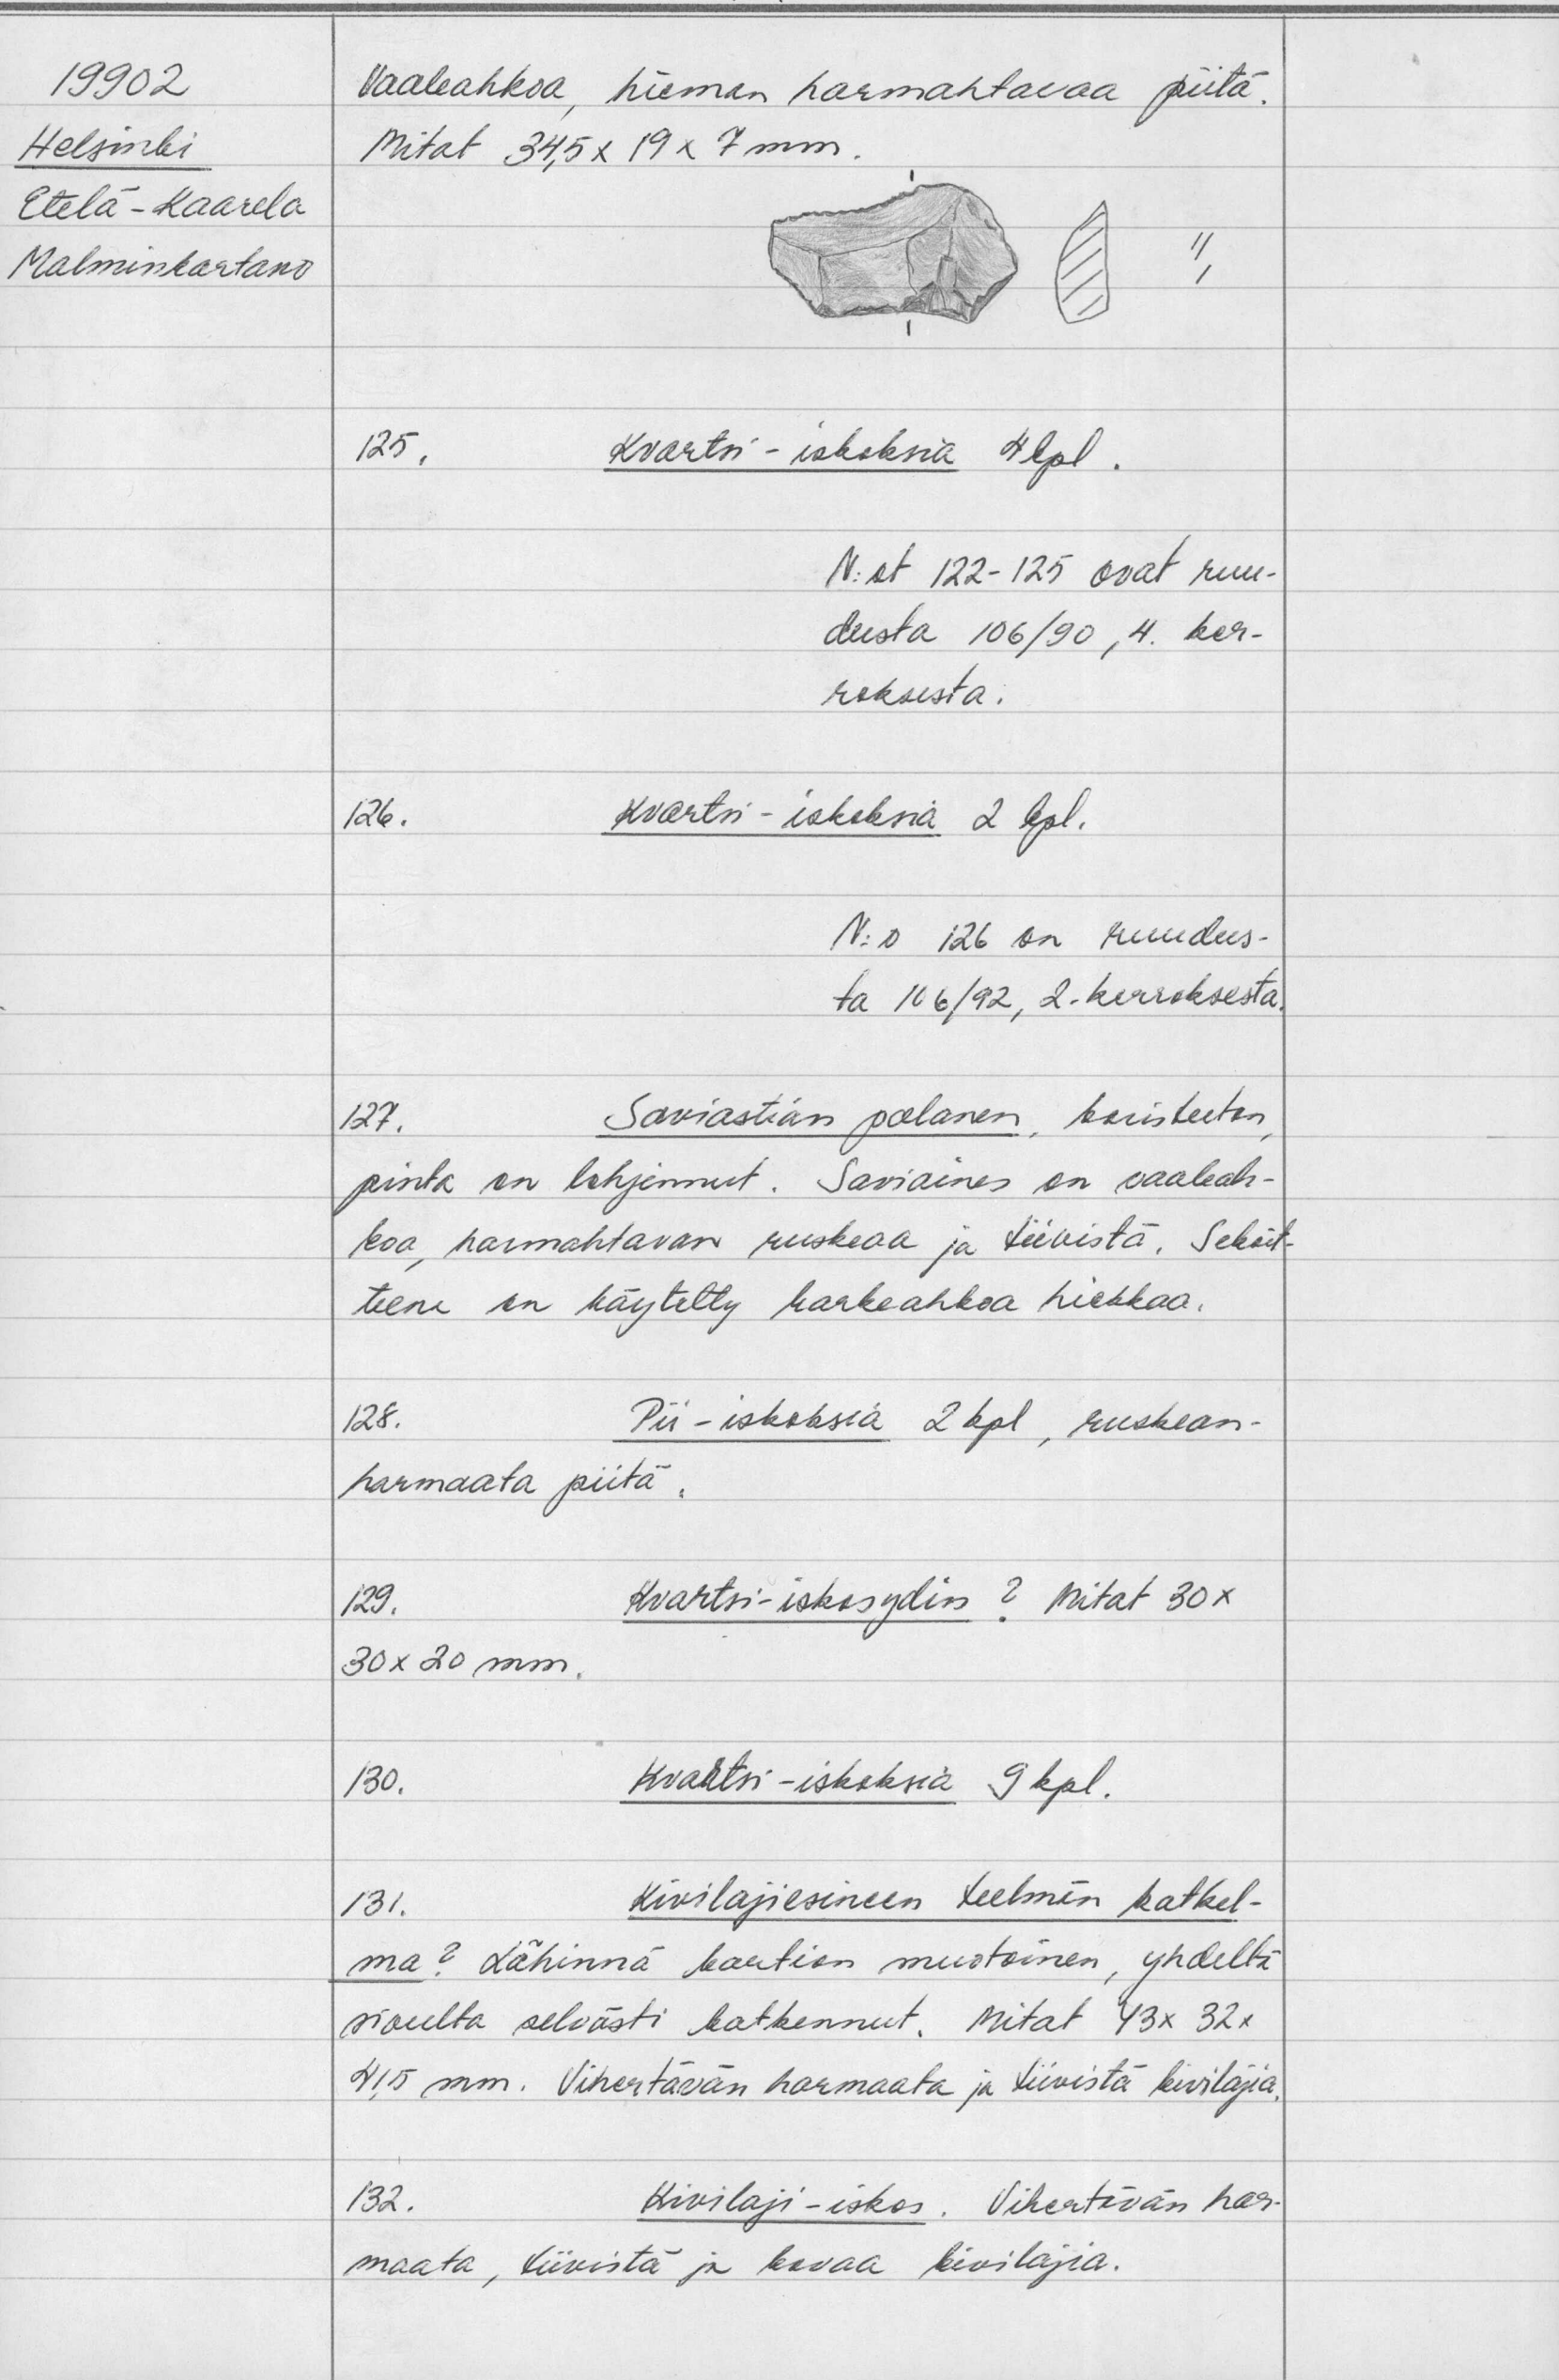 19902
Helsinki
Etelä-Kaarela
Malminkartano
Vaaleahkoa, hieman harmahtavaa piitä.
Mitat 34,5 x 19 x 7 mm.
125. Kvartsi-iskoksia 4 kpl.
N:ot 122-125 ovat ruu-
dusta 106/90, 4. ker-
roksesta.
126. Kvartsi-iskoksia 2 kpl.
N:o 126 on ruudus-
ta 106/92, 2. kerroksesta.
127. Saviastian palanen, koristeeton,
pinta on lohjennut. Saviaines on vaaleah-
koa, harmahtavan ruskeaa ja tiivistä. Sekoit-
teena on käytetty karkeahkoa hiekkaa.
128. Pii-iskoksia 2 kpl, ruskean-
harmaata piitä.
129. Kvartsi-iskosydin? Mitat 30 x
30 x 20 mm.
130. Kvartsi-iskoksia 9 kpl.
131. Kivilajiesineen teelmän katkel-
ma? Lähinnä kartion muotoinen, yhdeltä
sivulta selvästi katkennut. Mitat 43 x 32 x
41,5 mm. Vihertävän harmaata ja tiivistä kivilajia.
132. Kivilaji-iskos. Vihertävän har-
maata, tiivistä ja kovaa kivilajia.